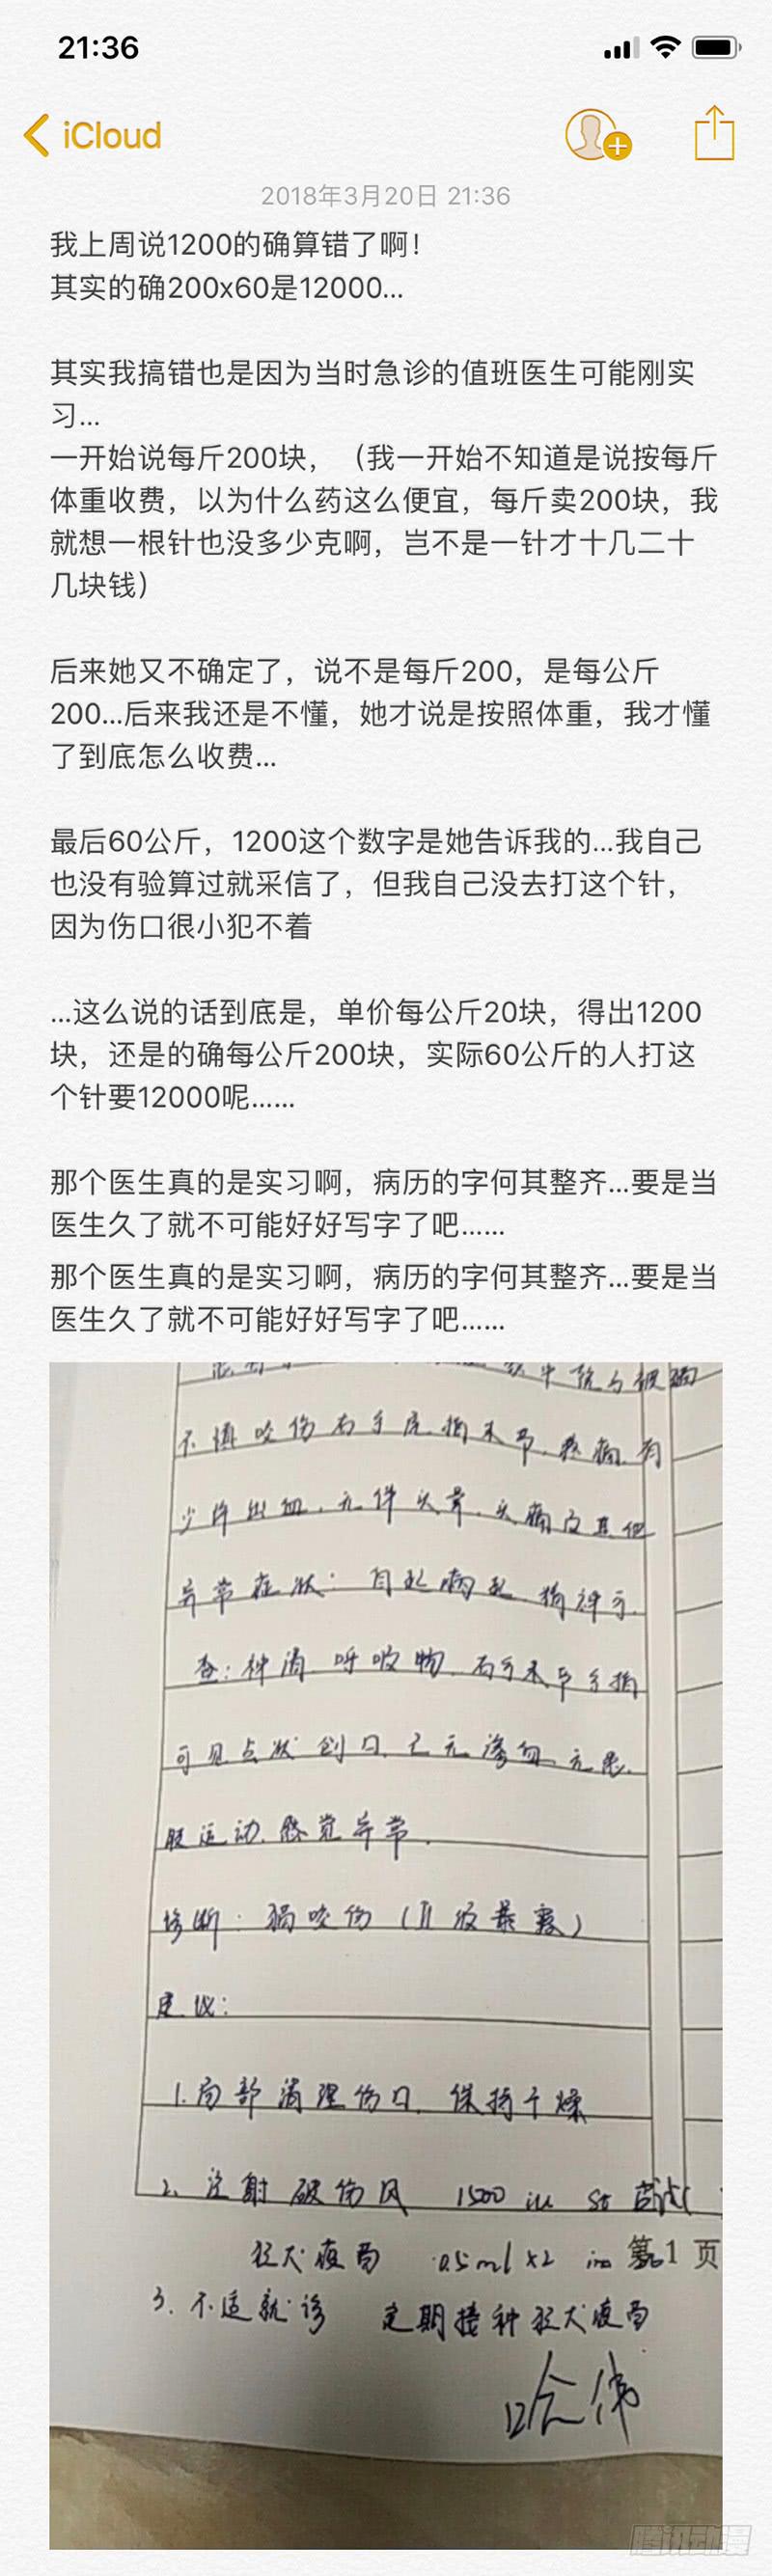 21:36
iCloud
2018年3月20日 21:36
我上周说1200的确算错了啊！
其实的确200x60是12000...
其实我搞错也是因为当时急诊的值班医生可能刚实
习...
一开始说每斤200块，（我一开始不知道是说按每斤
体重收费，以为什么药这么便宜，每斤卖200块，我
就想一根针也没多少克啊，岂不是一针才十几二十
几块钱）
后来她又不确定了，说不是每斤200，是每公斤
200...后来我还是不懂，她才说是按照体重，我才懂
了到底怎么收费...
最后60公斤，1200这个数字是她告诉我的...我自己
也没有验算过就采信了，但我自己没去打这个针，
因为伤口很小犯不着
...这么说的话到底是，单价每公斤20块，得出1200
块，还是的确每公斤200块，实际60公斤的人打这
个针要12000呢......
那个医生真的是实习啊，病历的字何其整齐...要是当
医生久了就不可能好好写字了吧......
那个医生真的是实习啊，病历的字何其整齐...要是当
医生久了就不可能好好写字了吧......
不慎咬伤右手 指末节.疼痛.有
少许出血.无伴头晕.头痛及其他
异常症状.
查:神清 呼吸 右手末节手指
可见点状创口.已无渗血.无
肢运动.感觉异常.
诊断: 咬伤(II级暴露)
建议:
1.局部清理伤口.保持干燥
2.注射破伤风 1500 iu st
狂犬疫苗 0.5ml x2 im 第1页
3.不适就诊 定期接种狂犬疫苗
腾讯动漫